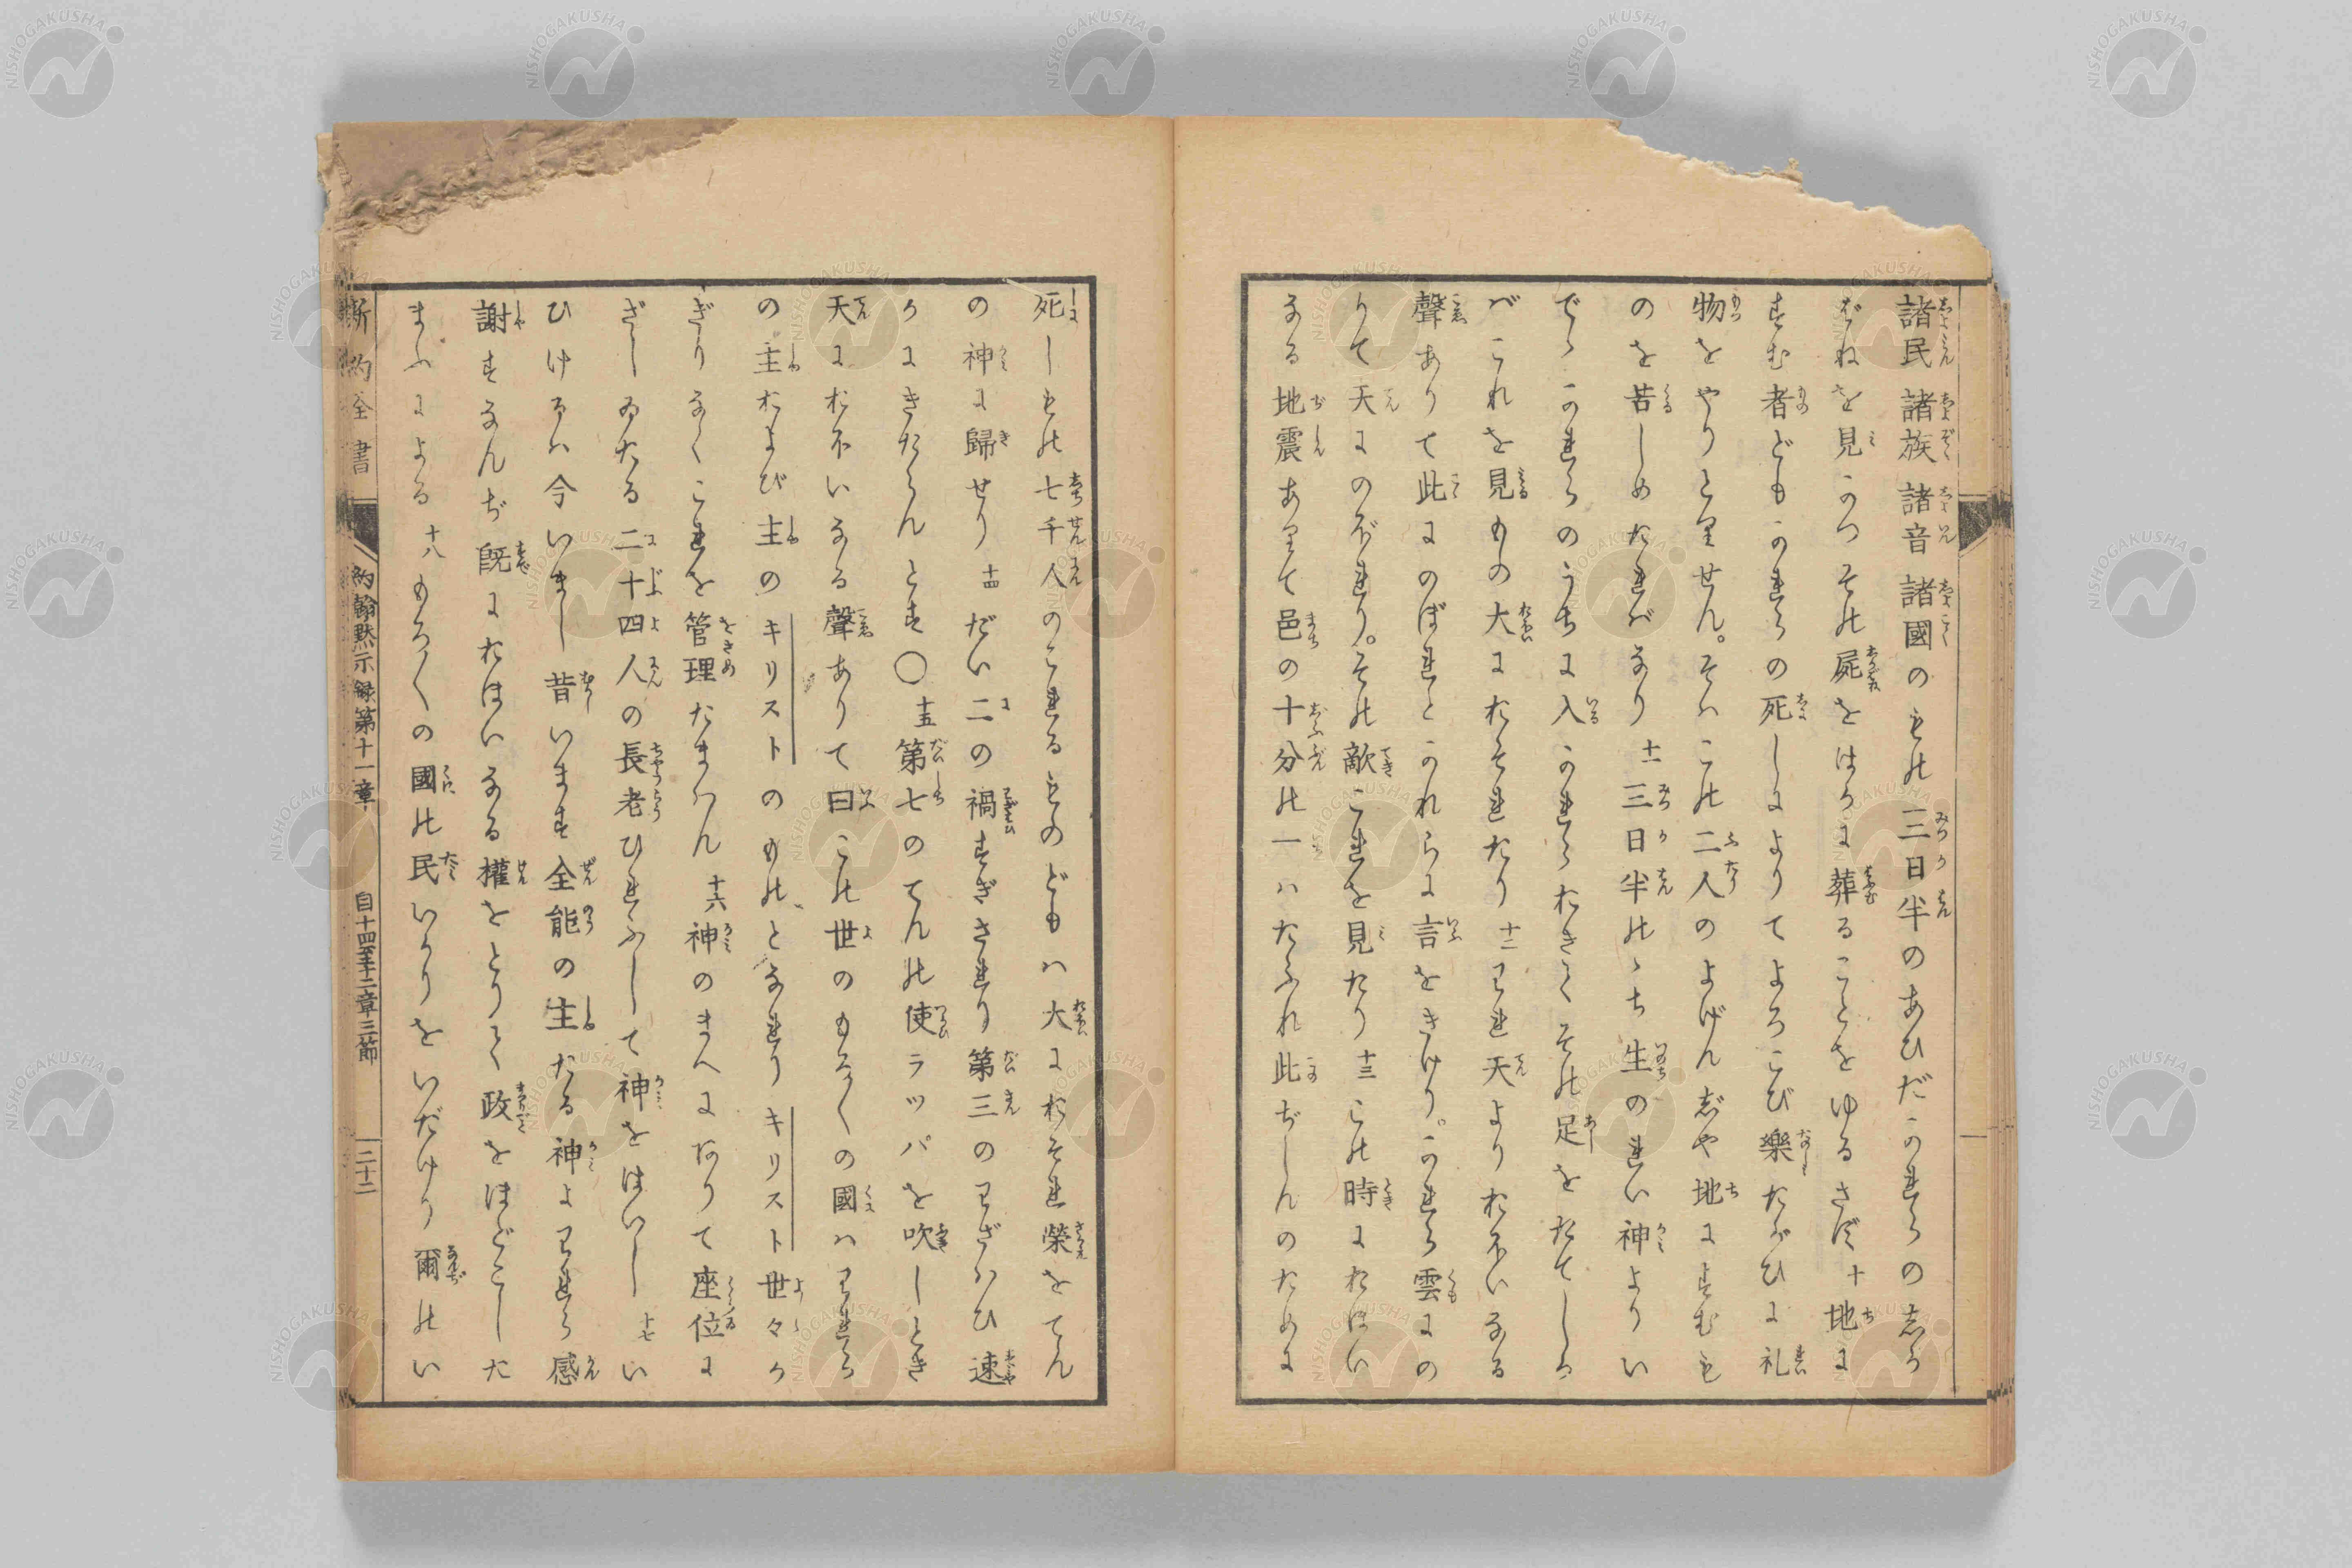 諸民諸族諸音諸國のもの三日半のあひだかれらのしか
ばねを見かつその屍をはかに葬ることをゆるさず 十 地に
すむ者どもかれらの死しによりてよろこび樂たがひに礼
物をやりとりせん。そはこの二人のよげんしや地にすむも
のを苦しめたればなり 十一 三日半ののち生のれい神よりい
でゝかれらのうちに入かれらおきてその足をたてしか
バこれを見もの大におそれたり 十二 われ天よりおほいなる
聲ありて此にのぼれとかれらに言をきけり。かれら雲にの
りて天にのぼれり。その敵これを見たり 十三 この時におほい
なる地震ありて邑の十分の一ハたふれ此ぢしんのために
死しもの七千人のこれるものどもハ大におそれ榮をてん
の神に歸せり 十四 だい二の禍すぎされり第三のわざハひ速
かにきたらんとす〇 十五 第七のてんの使ラッパを吹しとき
天におほいなる聲ありて曰この世のもろ〱の國ハわれら
の主および主のキリストのものとなれりキリスト世々か
ぎりなくこれを管理たまハん 十六 神のまへにありて座位に
ざしゐたる二十四人の長老ひれふして神をはいし 十七 い
ひけるハ今いまし昔います全能の主たる神よわれら感
謝すなんぢ既におほいなる權をとりて政をほどこした
まふによる 十八 もろ〱の國の民いかりをいだけり爾のい
新約全書 約翰黙示録第十一章 自十四至十二章三節 二十二
NISHOGAKUSHA